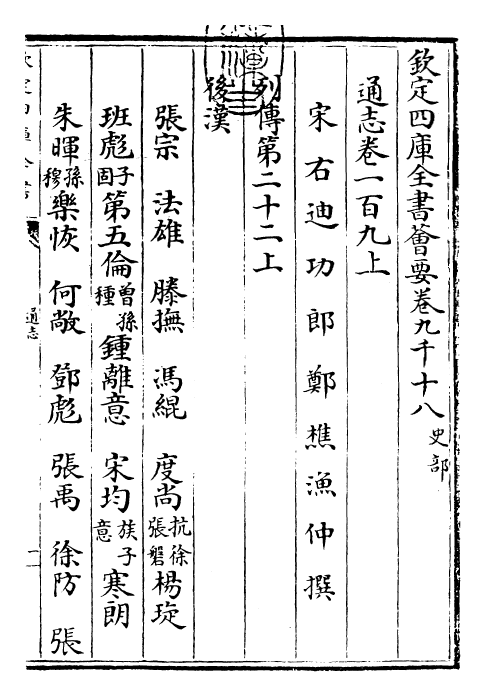 欽定四庫全書薈要卷九千十八 史部
通志卷一百九上
宋右迪功郎鄭樵漁仲撰
列傳第二十二上
後漢
張宗 法雄 滕撫 馮緄 度尚 抗徐 張磐 楊琁
班彪 子固 第五倫 曾孫種 鍾離意 宋均 族子意 寒朗
朱暉 孫穆 樂恢 何敞 鄧彪 張禹 徐防 張
通志